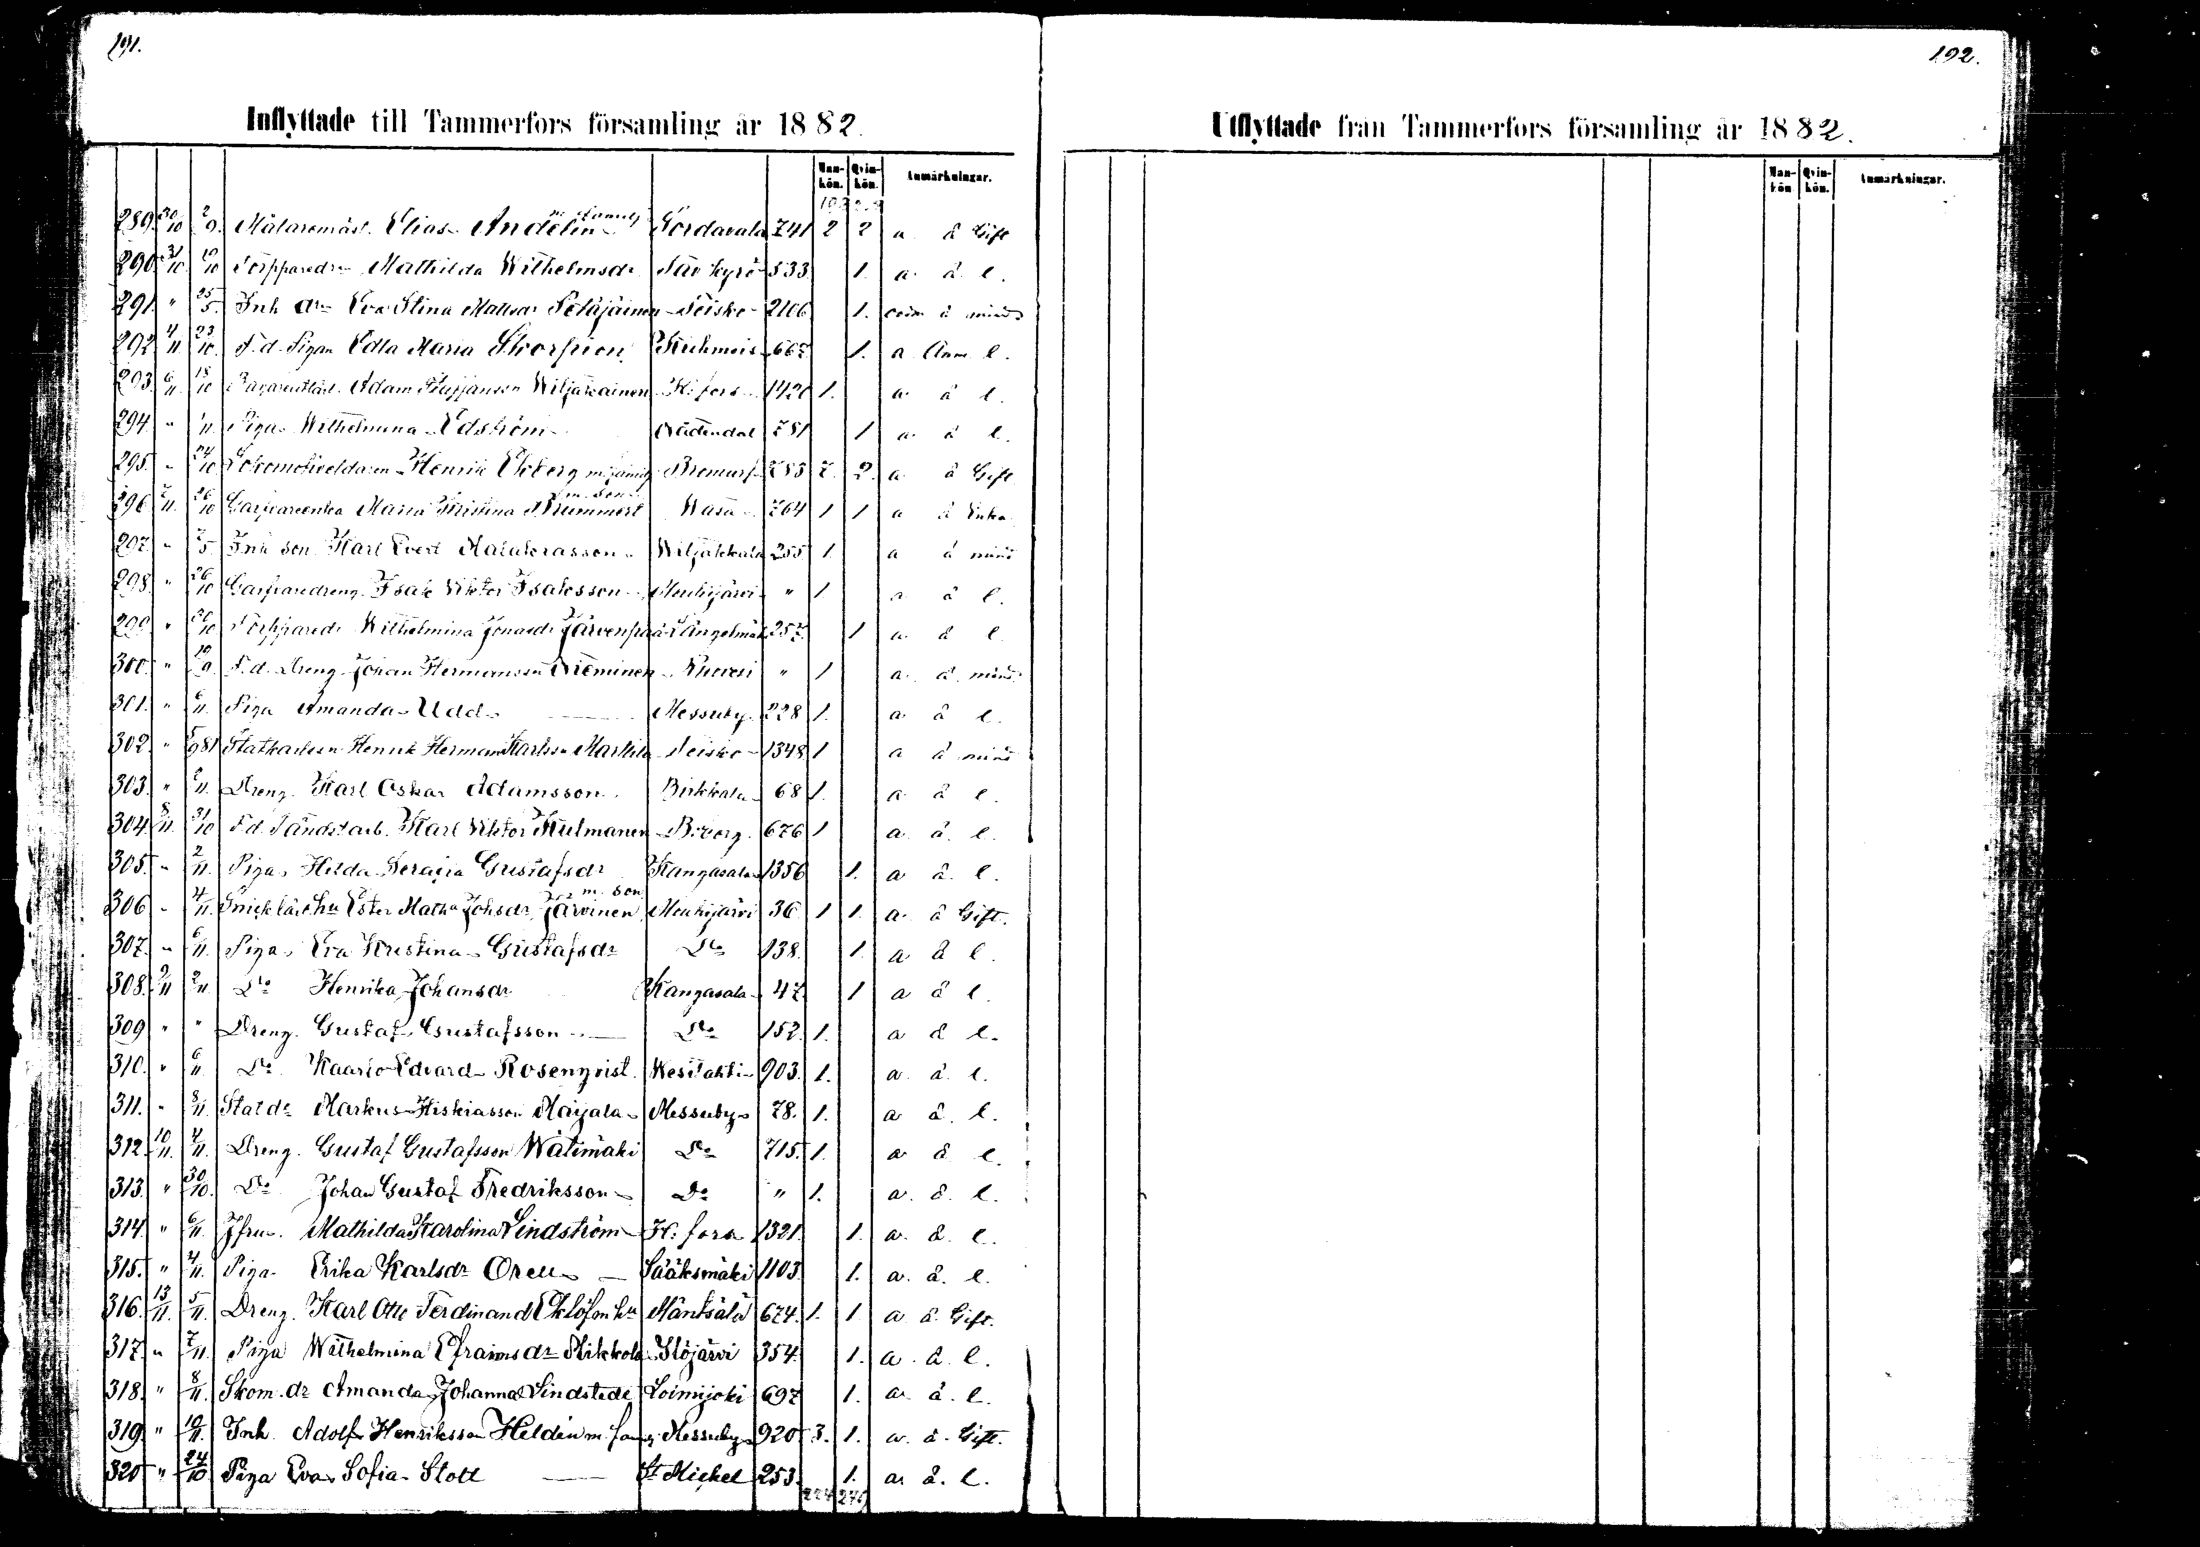 191.
192.
Inflyttade till Tammerfors församling år 1882.
Utflyttade från Tammerfors församling år 1882.
Mankön. Qvinkön. Anmärkningar.
Mankön. Qvinkön. Anmärkningar.
289. 30/10 2/9. Målaremäst. Elias Andelin m. familj Sordavala 741 2 2 a å Gift
290. 31/10 10/10 Torpparedr Mathilda Wilhelmsdr Tav kyrö 533 1. a. å. l.
291. " 25/5. Inh dr Eva Stina Mattsdr Petäjäinen Teisko 2106 1.
292 4/11 23/10. F.d. Pigan Edla Maria Skorpion Kuhmois 667 1. a Anm l.
293. 6/11 18/10 Adam Wiljakainen H:fors 1420 1. a å l.
294. " 1/11. Piga Wilhelmina Edström Nådendal 781 1 a å l.
295. " 24/10 Lokomotiveldaren Henrik Ekberg m. familj Bromarf 783 7. 2. a. å Gift
296. 7/11. 26/10 Garfvareenka Maria Kristina Krummert m. son Wasa 764 1 1 a å Enka
297. " 7/5. Inh son Karl Evert Malakiasson Wiljakkala 255 1. a å mind
298. " 26/10 Garfvaredreng Isak Viktor Isaksson Mouhijärvi " 1 a å l.
299. " 26/10 Torpparedr Wilhelmina Jonasdr Järvenpää Längelmäki 257 1 a. å l.
300. " 19/9. F.d. Dreng Johan Hermansson Nieminen Ruovesi " 1 a. å. mind.
301. " 6/11. Piga Amanda Udd Messuby. 228 1. a. å l.
302. " Statkarlsson Henrik Herman Karlsson Markkila Teisko 1348 1 a å mind
303. " 6/11. Dreng. Karl Oskar Adamsson Birkkala 68 1. a å l.
304 8/11. 31/10 F.d. Tändst.arb. Karl Viktor Kulmanen B:borg. 676 1 a. å. l.
305. " 2/11. Piga Hilda Serafia Gustafsdr Kangasala 1356 1. a å. l.
306 " 4/11. Snick lärl hu Ester Matha Johsdr Järvinen m. son Mouhijärvi 36 1 1. a. å Gift.
307. " 6/11. Piga Eva Kristina Gustafsdr Do 138. 1. a å l.
308. 9/11 2/11. Do Henrika Johansdr Kangasala 47 1 a å l.
309 " " Dreng. Gustaf Gustafsson Do 152. 1. a å l.
310. " 6/11. Do Kaarlo Edvard Rosenqvist Wesilahti 903. 1. a. å. l.
311. " 8/11. Statdr Markus Hiskiasson Maijala Messuby 78. 1. a å. l.
312. 10/11. 4/11. Dreng. Gustaf Gustafsson Wätimäki Do 715. 1. a å l.
313. " 30/10. Do Johan Gustaf Fredriksson Do " 1. a. å. l.
314. " 6/11. Jfru. Mathilda Karolina Lindström H:fors 1321. 1. a. å. l.
315. " 4/11. Piga Erika Karlsdr Orell Sääksmäki 1103. 1. a. å. l.
316. 13/11. 5/11. Dreng. Karl Otto Ferdinand Eklöf m hu Mäntsälä 674. 1. 1 a å. Gift.
317. " 7/11. Piga Wilhelmina Efraimsdr Mikkola Ylöjärvi 354. 1. a. å. l.
318. " 8/11. Skom. dr Amanda Johanna Lindstedt Loimijoki 697 1. a. å. l.
319. " 10/11. Inh. Adolf Henriksson Heldén m. familj Messuby 920 3. 1. a. å. Gift.
320 " 24/10 Piga Eva Sofia Stolt St Michel 253. 1. a. å. l.